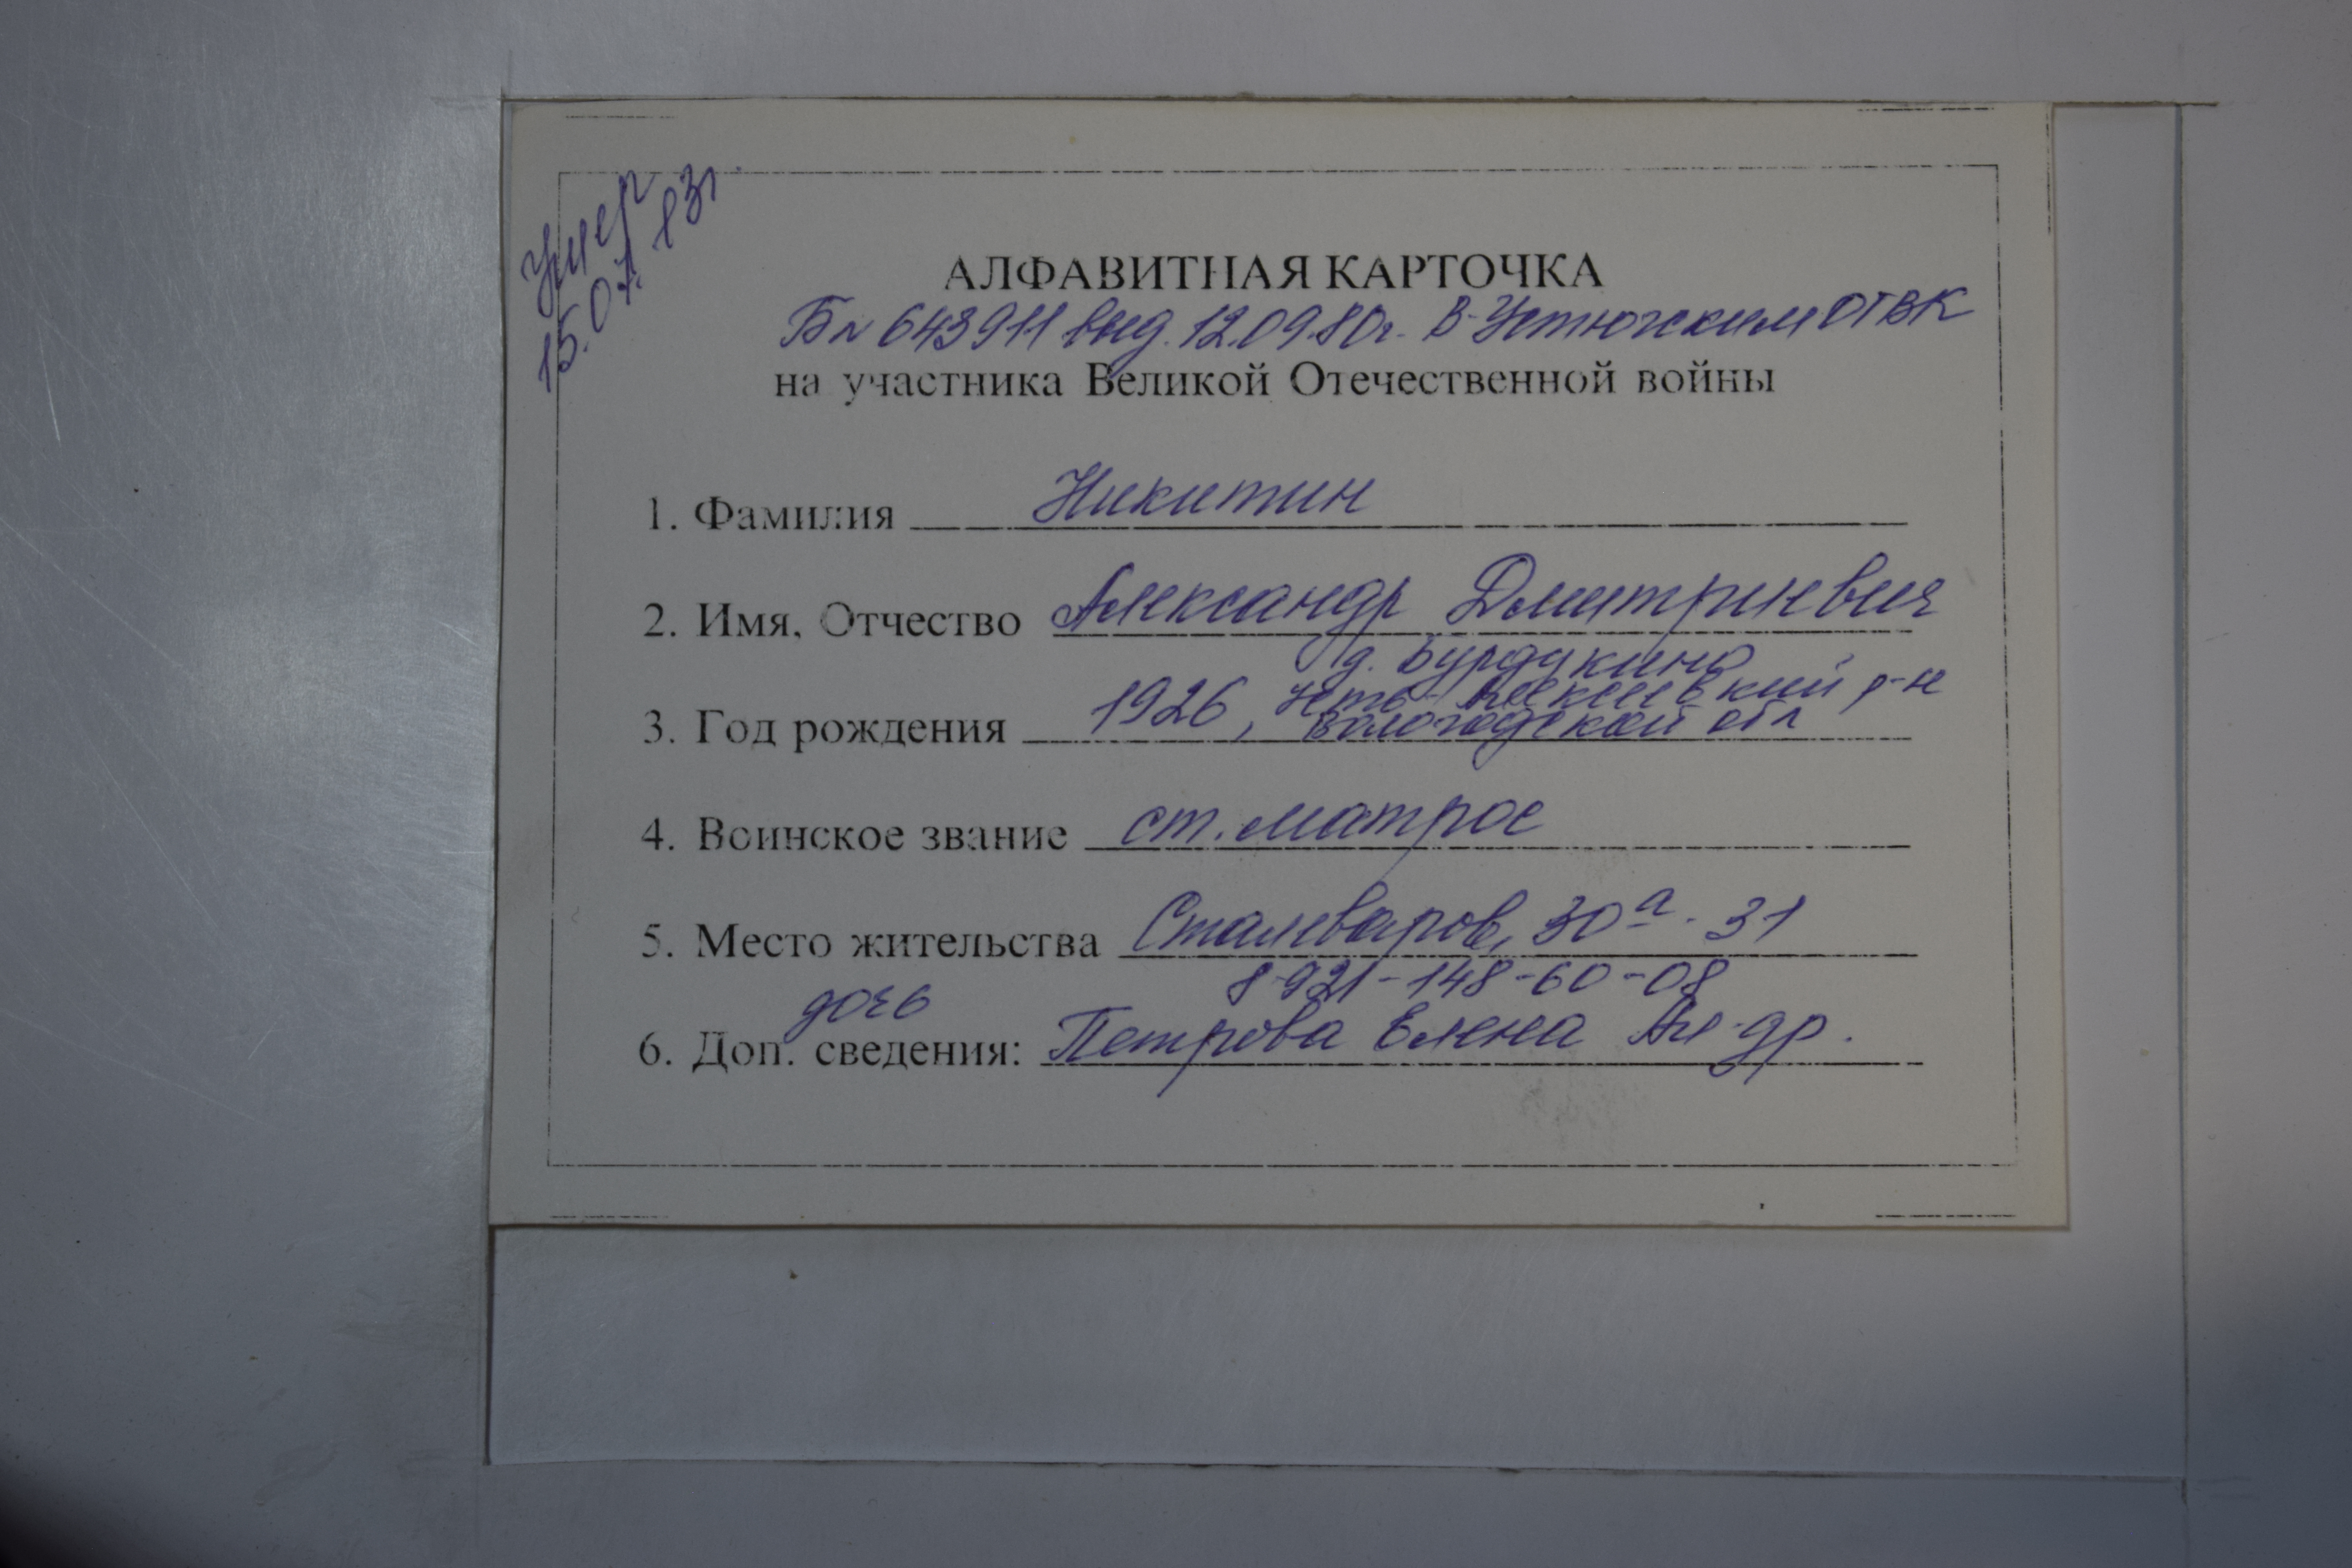 Умер
15.07.83г.
АЛФАВИТНАЯ КАРТОЧКА
Бл 643911 выд. 12.09.80г. В-Устюгским ОГВК
на участника Великой Отечественной войны
1. Фамилия Никитин
2. Имя, Отчество Александр Дмитриевич
д. Бурдукино
3. Год рождения 1926, Усть-Алексеевский р-н
Вологодской обл
4. Воинское звание ст. матрос
5. Место жительства Сталеваров, 30а-31
8-921-148-60-08
дочь
6. Доп. сведения: Петрова Елена Ал-др.